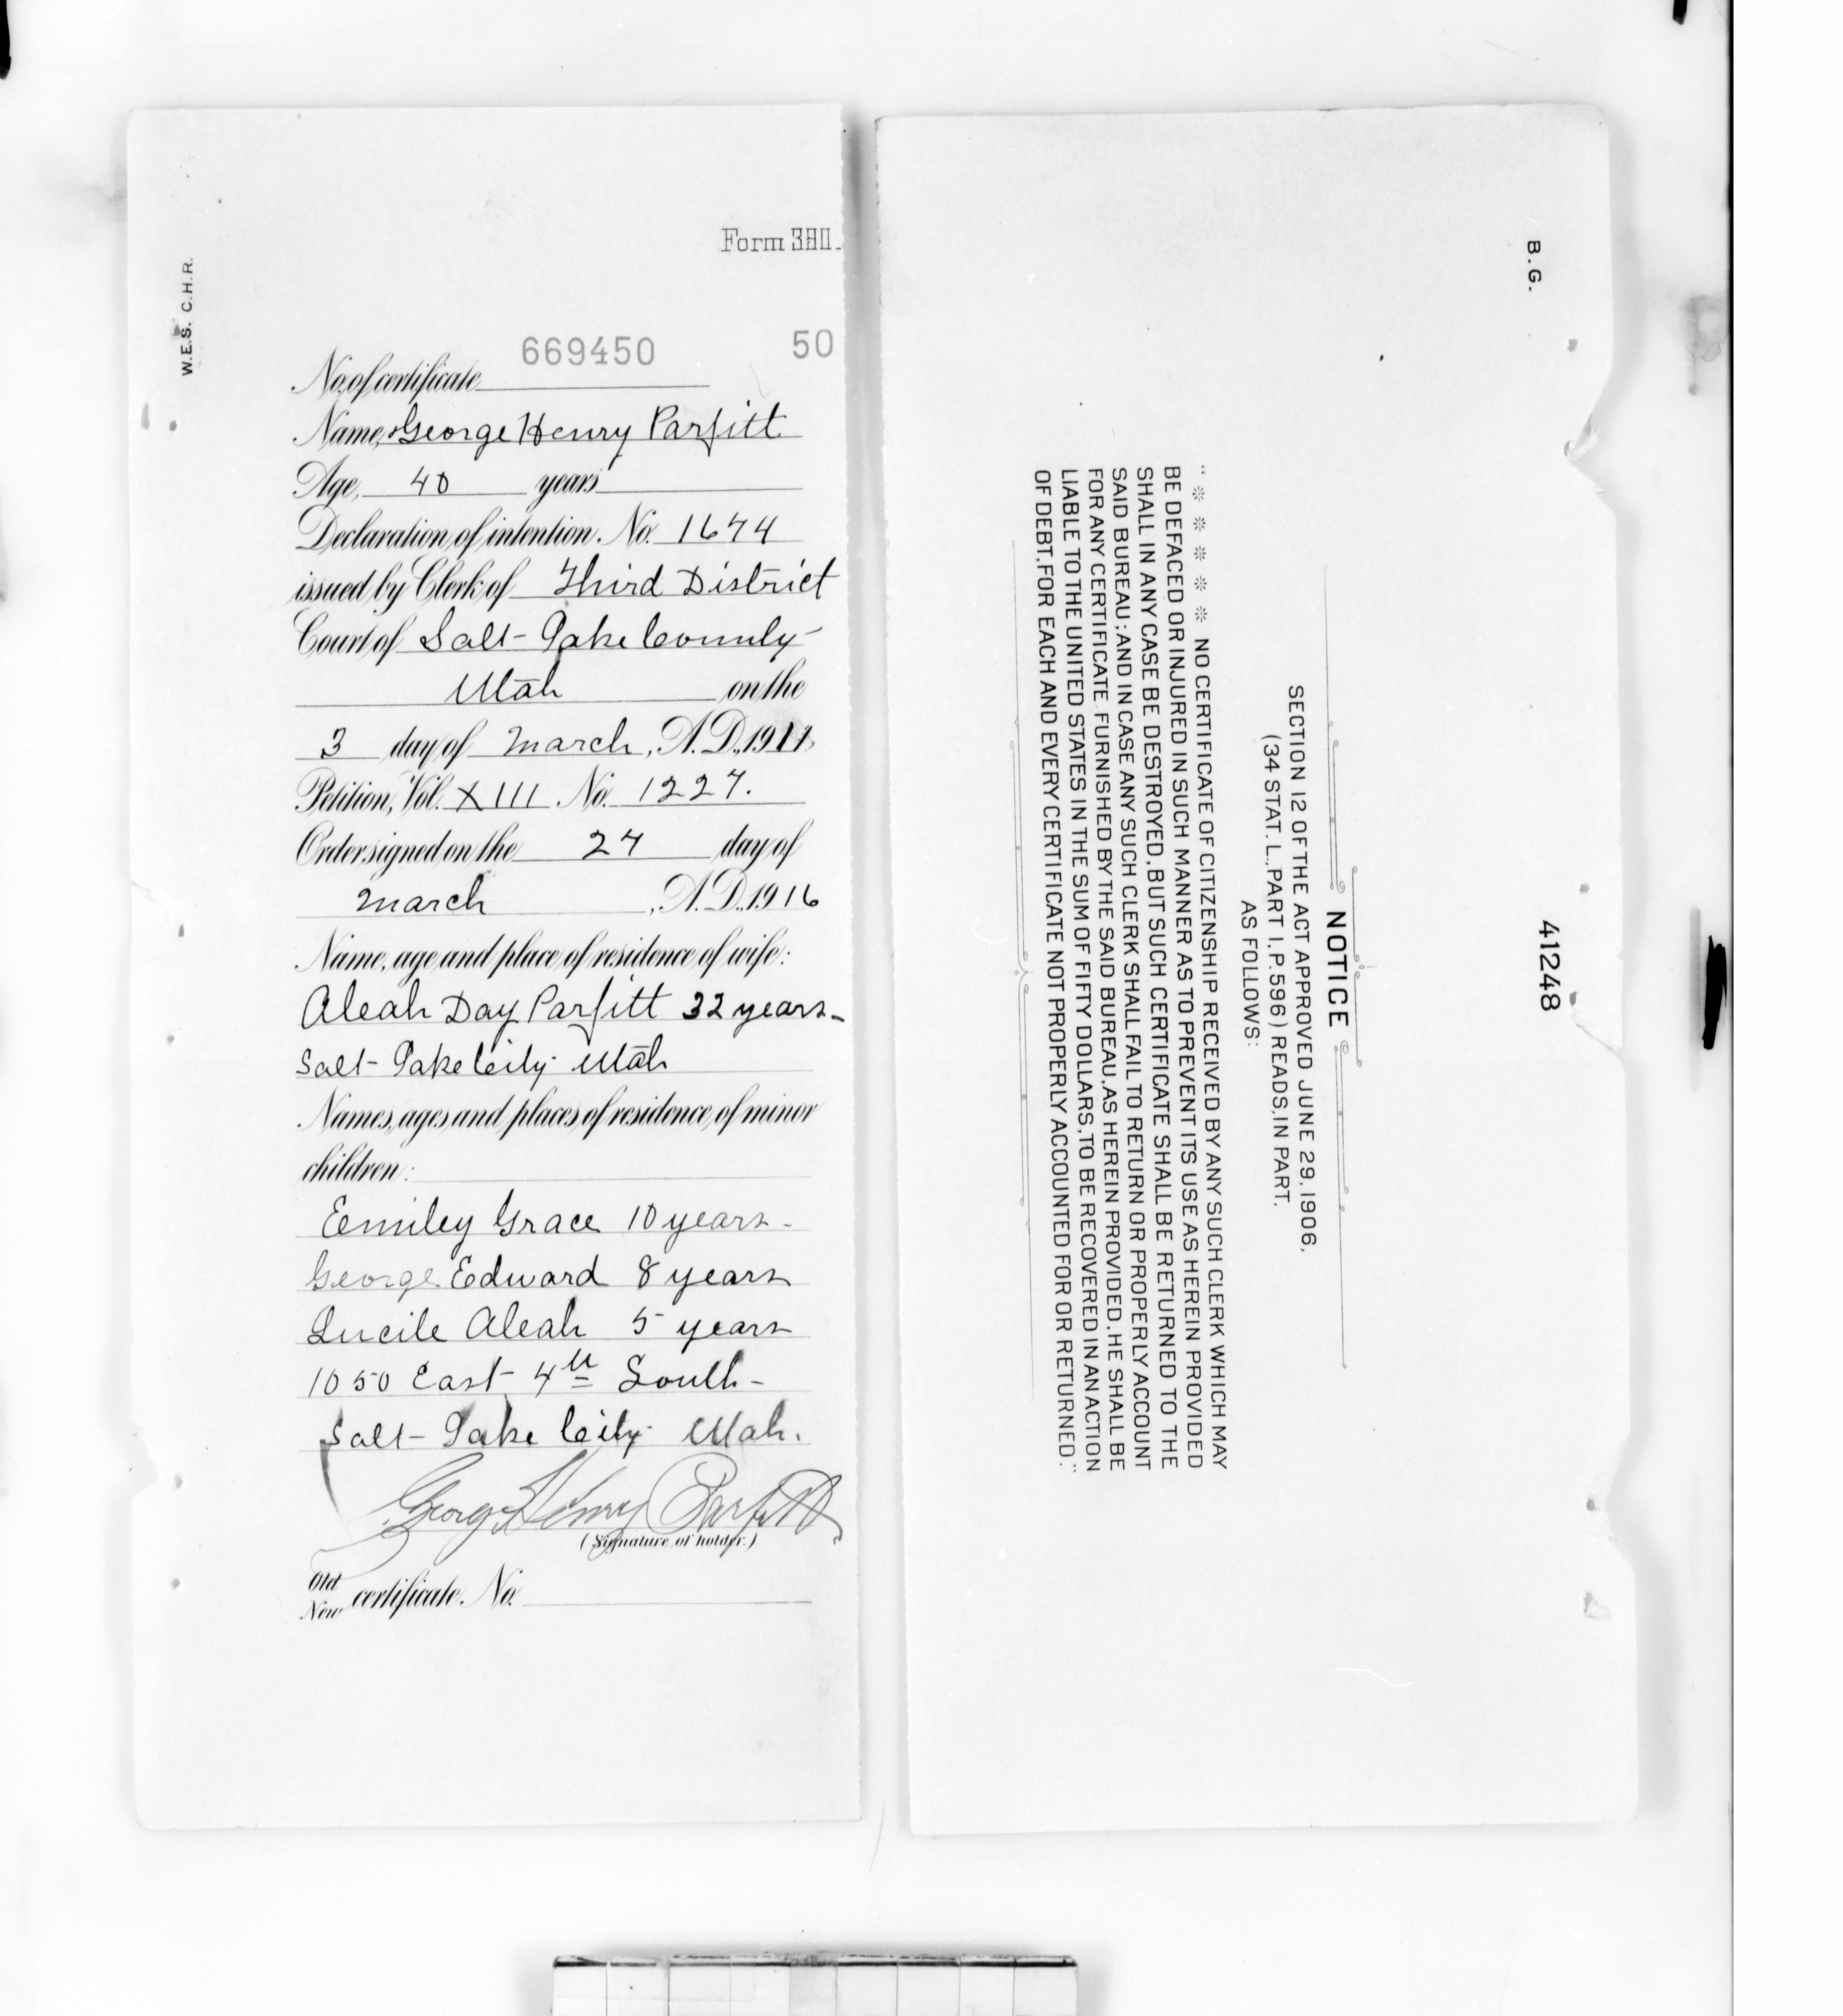 W.E.S. C.H.R.
Form
669450 50
No. of certificate
Name, George Henry Parfitt
Age, 40 years
Declaration of intention. No. 1674
issued by Clerk of Third District
Court of Salt Lake County
Utah on the
3 day of March, A.D., 19
Petition, Vol. XIII No. 1227.
Order signed on the 24 day of
March, A.D., 1916
Name, age and place of residence of wife:
Aleah Day Parfitt 32 years
Salt Lake City Utah
Names, ages and places of residence of minor
children:
Emiley Grace 10 years
George Edward 8 years
Lucile Aleah 5 years
1050 East 4th South
Salt Lake City Utah.
George Henry Parfitt
(Signature of holder.)
Old
New certificate. No.
B.G.
41248
NOTICE
SECTION 12 OF THE ACT APPROVED JUNE 29, 1906,
(34 STAT. L., PART 1, P. 596) READS, IN PART,
AS FOLLOWS:
" * * * * * NO CERTIFICATE OF CITIZENSHIP RECEIVED BY ANY SUCH CLERK WHICH MAY
BE DEFACED OR INJURED IN SUCH MANNER AS TO PREVENT ITS USE AS HEREIN PROVIDED
SHALL IN ANY CASE BE DESTROYED, BUT SUCH CERTIFICATE SHALL BE RETURNED TO THE
SAID BUREAU; AND IN CASE ANY SUCH CLERK SHALL FAIL TO RETURN OR PROPERLY ACCOUNT
FOR ANY CERTIFICATE FURNISHED BY THE SAID BUREAU, AS HEREIN PROVIDED, HE SHALL BE
LIABLE TO THE UNITED STATES IN THE SUM OF FIFTY DOLLARS, TO BE RECOVERED IN AN ACTION
OF DEBT, FOR EACH AND EVERY CERTIFICATE NOT PROPERLY ACCOUNTED FOR OR RETURNED."